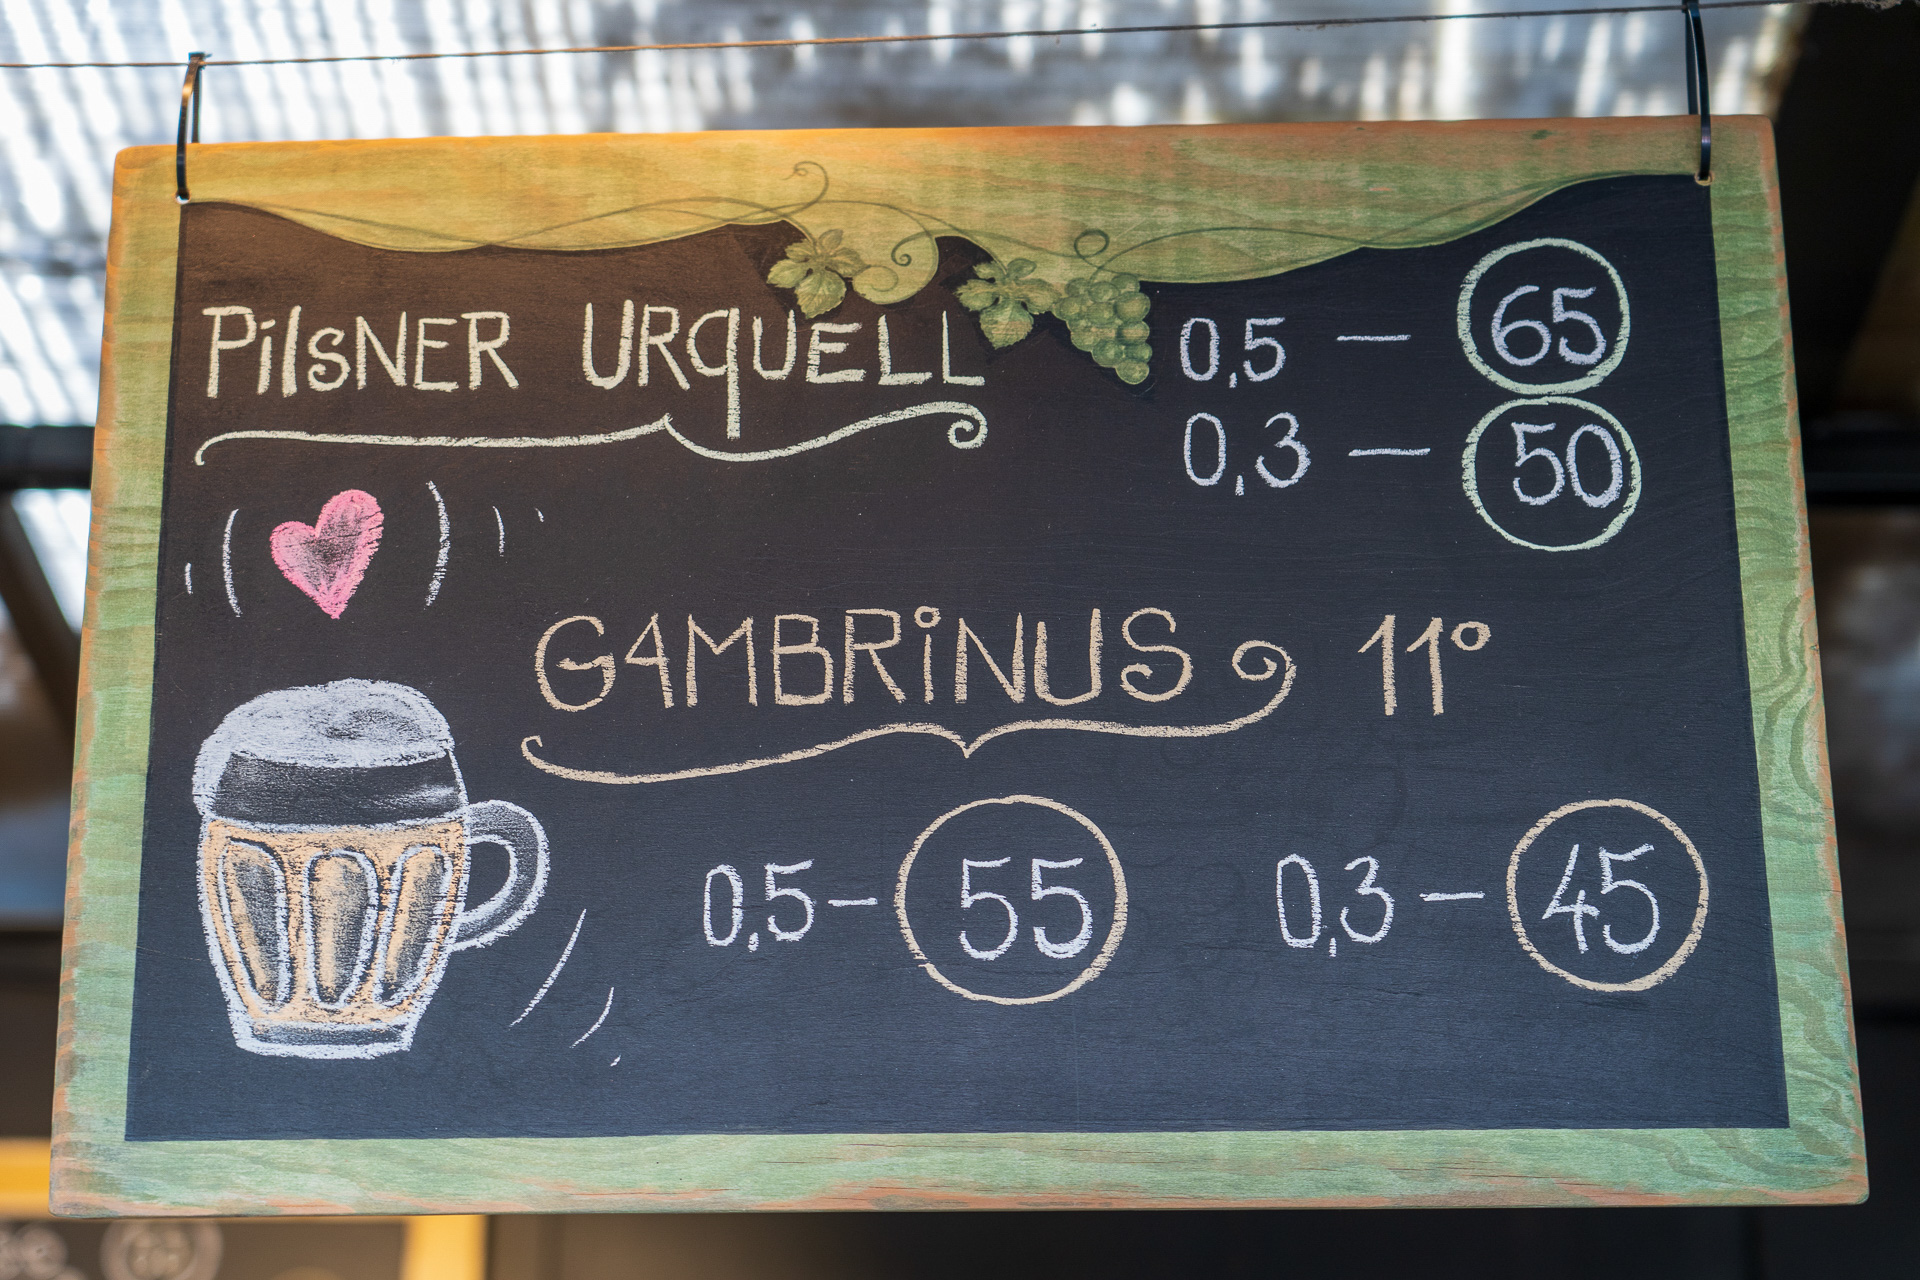 PilSNER URqUELL 0,5 — 65
0,3 — 50
GAMBRiNUS 11°
0,5 – 55 0,3 — 45